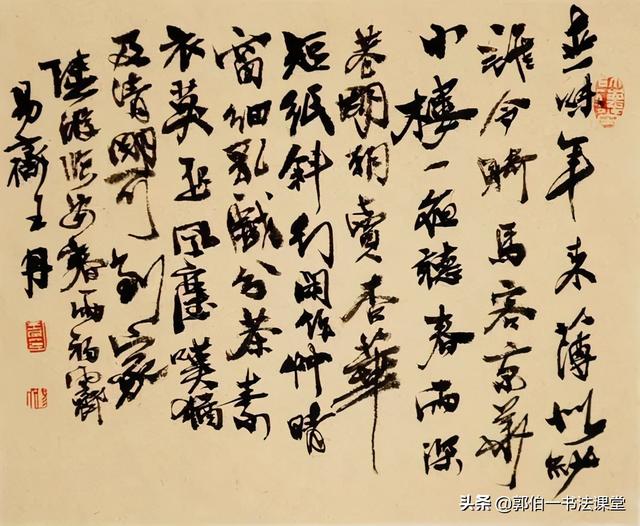 世味年来薄似紗
誰令騎馬客京華
小樓一夜聽春雨深
巷明朝賣杏華
短紙斜行閑作艸晴
窗細乳戲分茶素
衣莫起風塵嘆猶
及清明可到家
陸游臨安春雨初霽
易齋王丹
头条 @郭伯一书法课堂